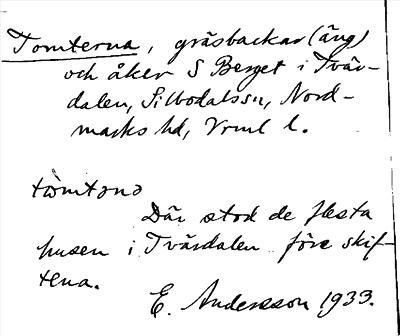 Tomterna, gräsbackar (äng)
och åker S Berget i Tvär-
dalen, Silbodalssn, Nord-
marks hd, Vrml l.
tòmtənɔ
Där stod de flesta
husen i Tvärdalen före skif-
tena.
E. Andersson 1933.